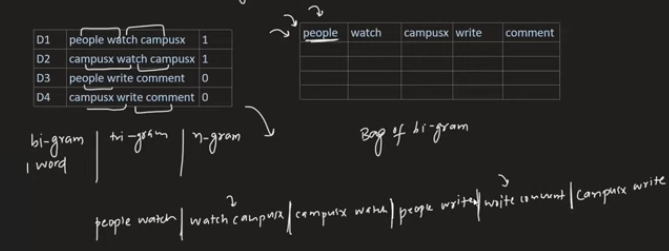 D1 people watch campusx 1
D2 campusx watch campusx 1
D3 people write comment 0
D4 campusx write comment 0
people watch campusx write comment
bi-gram | tri-gram | n-gram
1 word
Bag of bi-gram
people watch | watch campusx | campusx watch | people write | write comment | campusx write